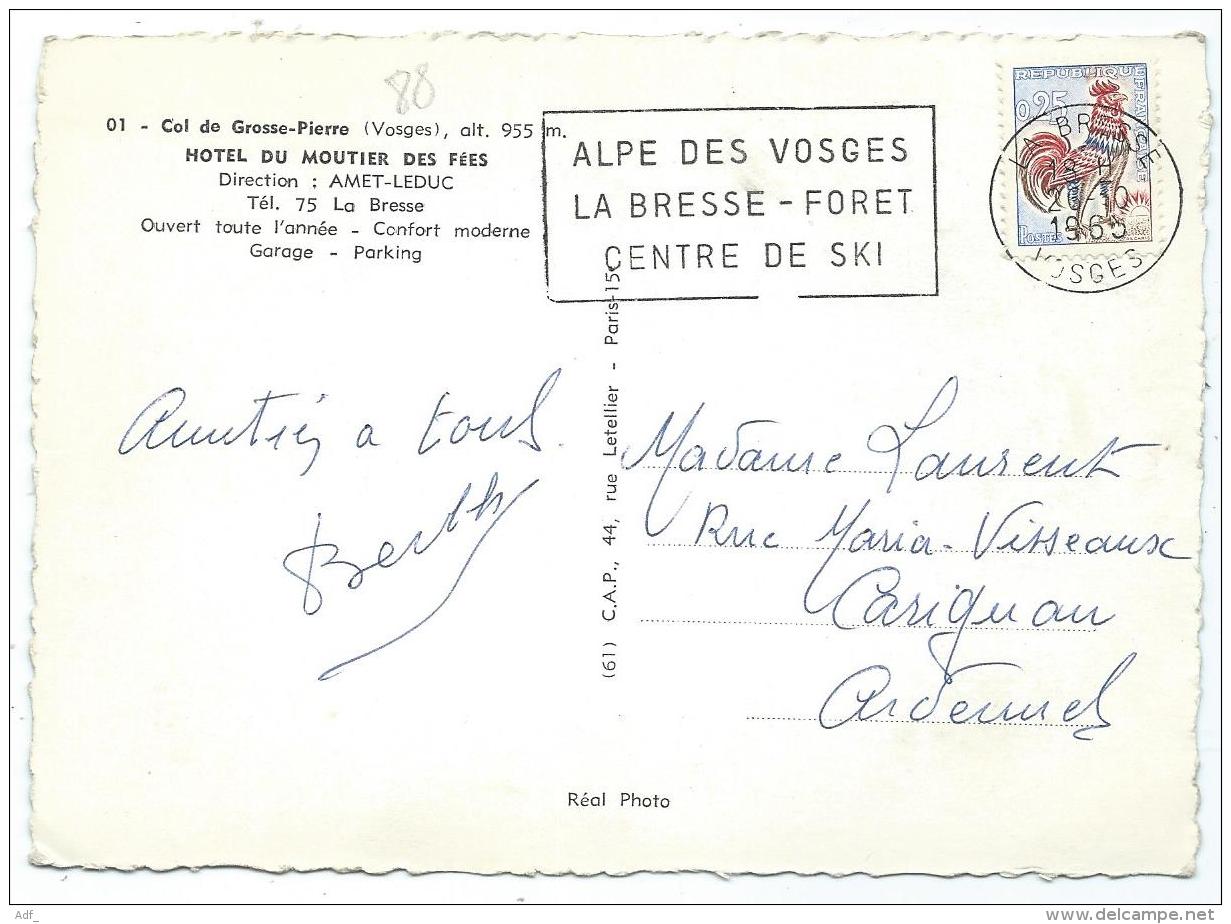 88
01 - Col de Grosse-Pierre (Vosges), alt. 955 m.
HOTEL DU MOUTIER DES FéES
Direction : AMET-LEDUC
Tél. 75 La Bresse
Ouvert toute l'année - Confort moderne
Garage - Parking
ALPE DES VOSGES
LA BRESSE - FORET
CENTRE DE SKI
REPUBLIQUE FRANCAISE
0,25
POSTES
LA BRESSE
18 H
26-10
1965
VOSGES
Amitiés a tous.
Berthe
(61) C.A.P., 44, rue Letellier - Paris-15e
Madame Laurent
Rue Maria-Visseaux
Carignan
Ardennes
Réal Photo
Adf_
www.delcampe.net